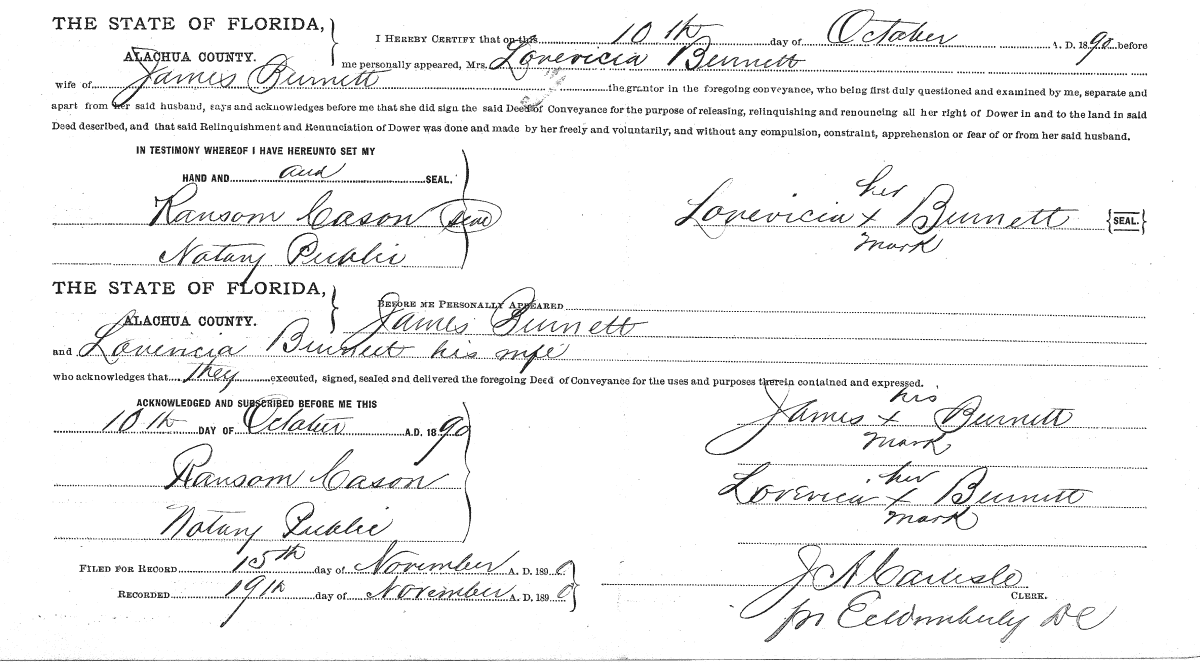 THE STATE OF FLORIDA,
ALACHUA COUNTY.
I HEREBY CERTIFY that on this 10th day of October A. D. 1890 before
me personally appeared, Mrs. Lovevicia Burnett
wife of James Burnett the grantor in the foregoing conveyance, who being first duly questioned and examined by me, separate and
apart from her said husband, says and acknowledges before me that she did sign the said Deed of Conveyance for the purpose of releasing, relinquishing and renouncing all her right of Dower in and to the land in said
Deed described, and that said Relinquishment and Renunciation of Dower was done and made by her freely and voluntarily, and without any compulsion, constraint, apprehension or fear of or from her said husband.
IN TESTIMONY WHEREOF I HAVE HEREUNTO SET MY
HAND AND and SEAL.
Ransom Cason (seal)
Notary Public
her
Lovevicia x Burnett {SEAL.}
mark
THE STATE OF FLORIDA,
ALACHUA COUNTY.
BEFORE ME PERSONALLY APPEARED
James Burnett
and Lovencia Burnett his wife
who acknowledges that they executed, signed, sealed and delivered the foregoing Deed of Conveyance for the uses and purposes therein contained and expressed.
ACKNOWLEDGED AND SUBSCRIBED BEFORE ME THIS
10th DAY OF October A.D. 1890
Ransom Cason
Notary Public
his
James x Burnett
mark
her
Lovevicia x Burnett
mark
FILED FOR RECORD 15th day of November A. D. 1890
RECORDED 19th day of November A. D. 1890
J A Carlisle
CLERK.
pr DC